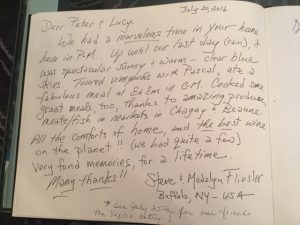 July 20, 2016
Dear Peter & Lucy,
We had a marvelous time in your home
here in P-M. Up until our last day (rain), it
was spectacular sunny & warm - clear blue
skies. Toured vineyards with Pascal, ate a
fabulous meal at Ed Em in C-M. Cooked some
great meals, too, thanks to amazing produce,
meats/fish in markets in Chagny & Beaune.
All the comforts of home, and the best wine
on the planet!! (we had quite a few)
Very fond memories, for a lifetime.
Many thanks!!
Steve & Madalyn Fliesler
Buffalo, NY - USA
* see July 25th for our friends
the